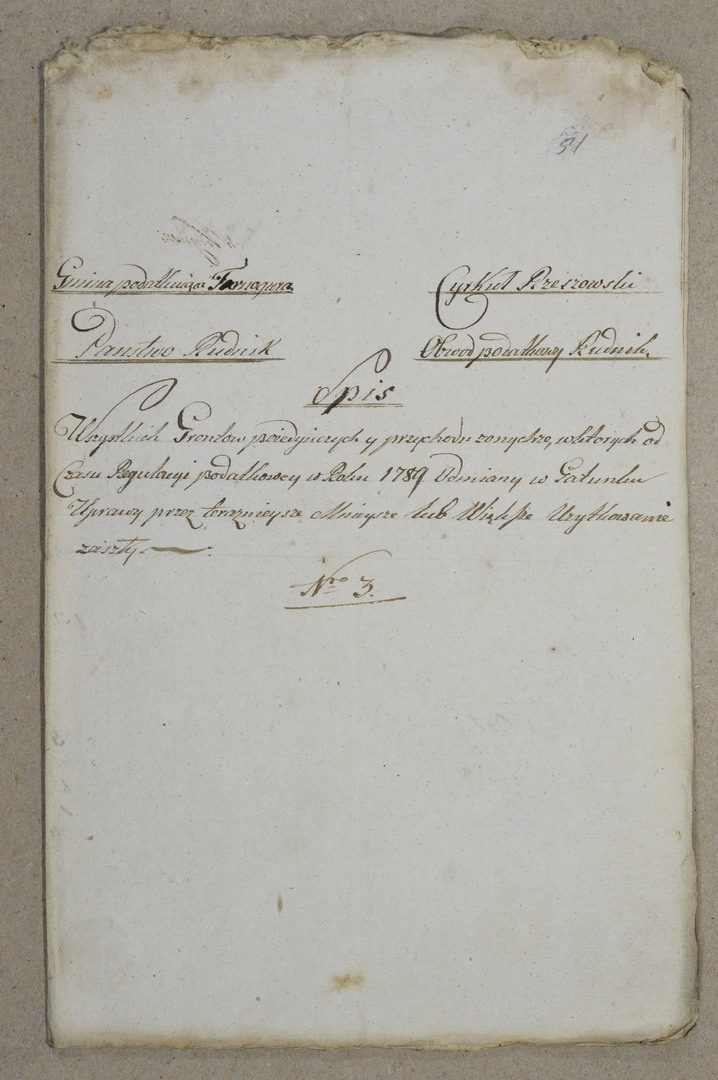 54
Gmina podatkuiąca Tarnagura
Cyrkuł Rzeszowski
Państwo Rudnik
Obwod podatkowy Rudnik.
Spis
Wszystkich Grontow poiedyńczych y przychodu zonych, w ktorych od
Czasu Regulacyi podatkowey w Roku 1789 Odmiany w Gatunku
Uprawy przez teraznieysze Mnieysze lub Większe Uzytkowanie
zaszły.
Nro 3.